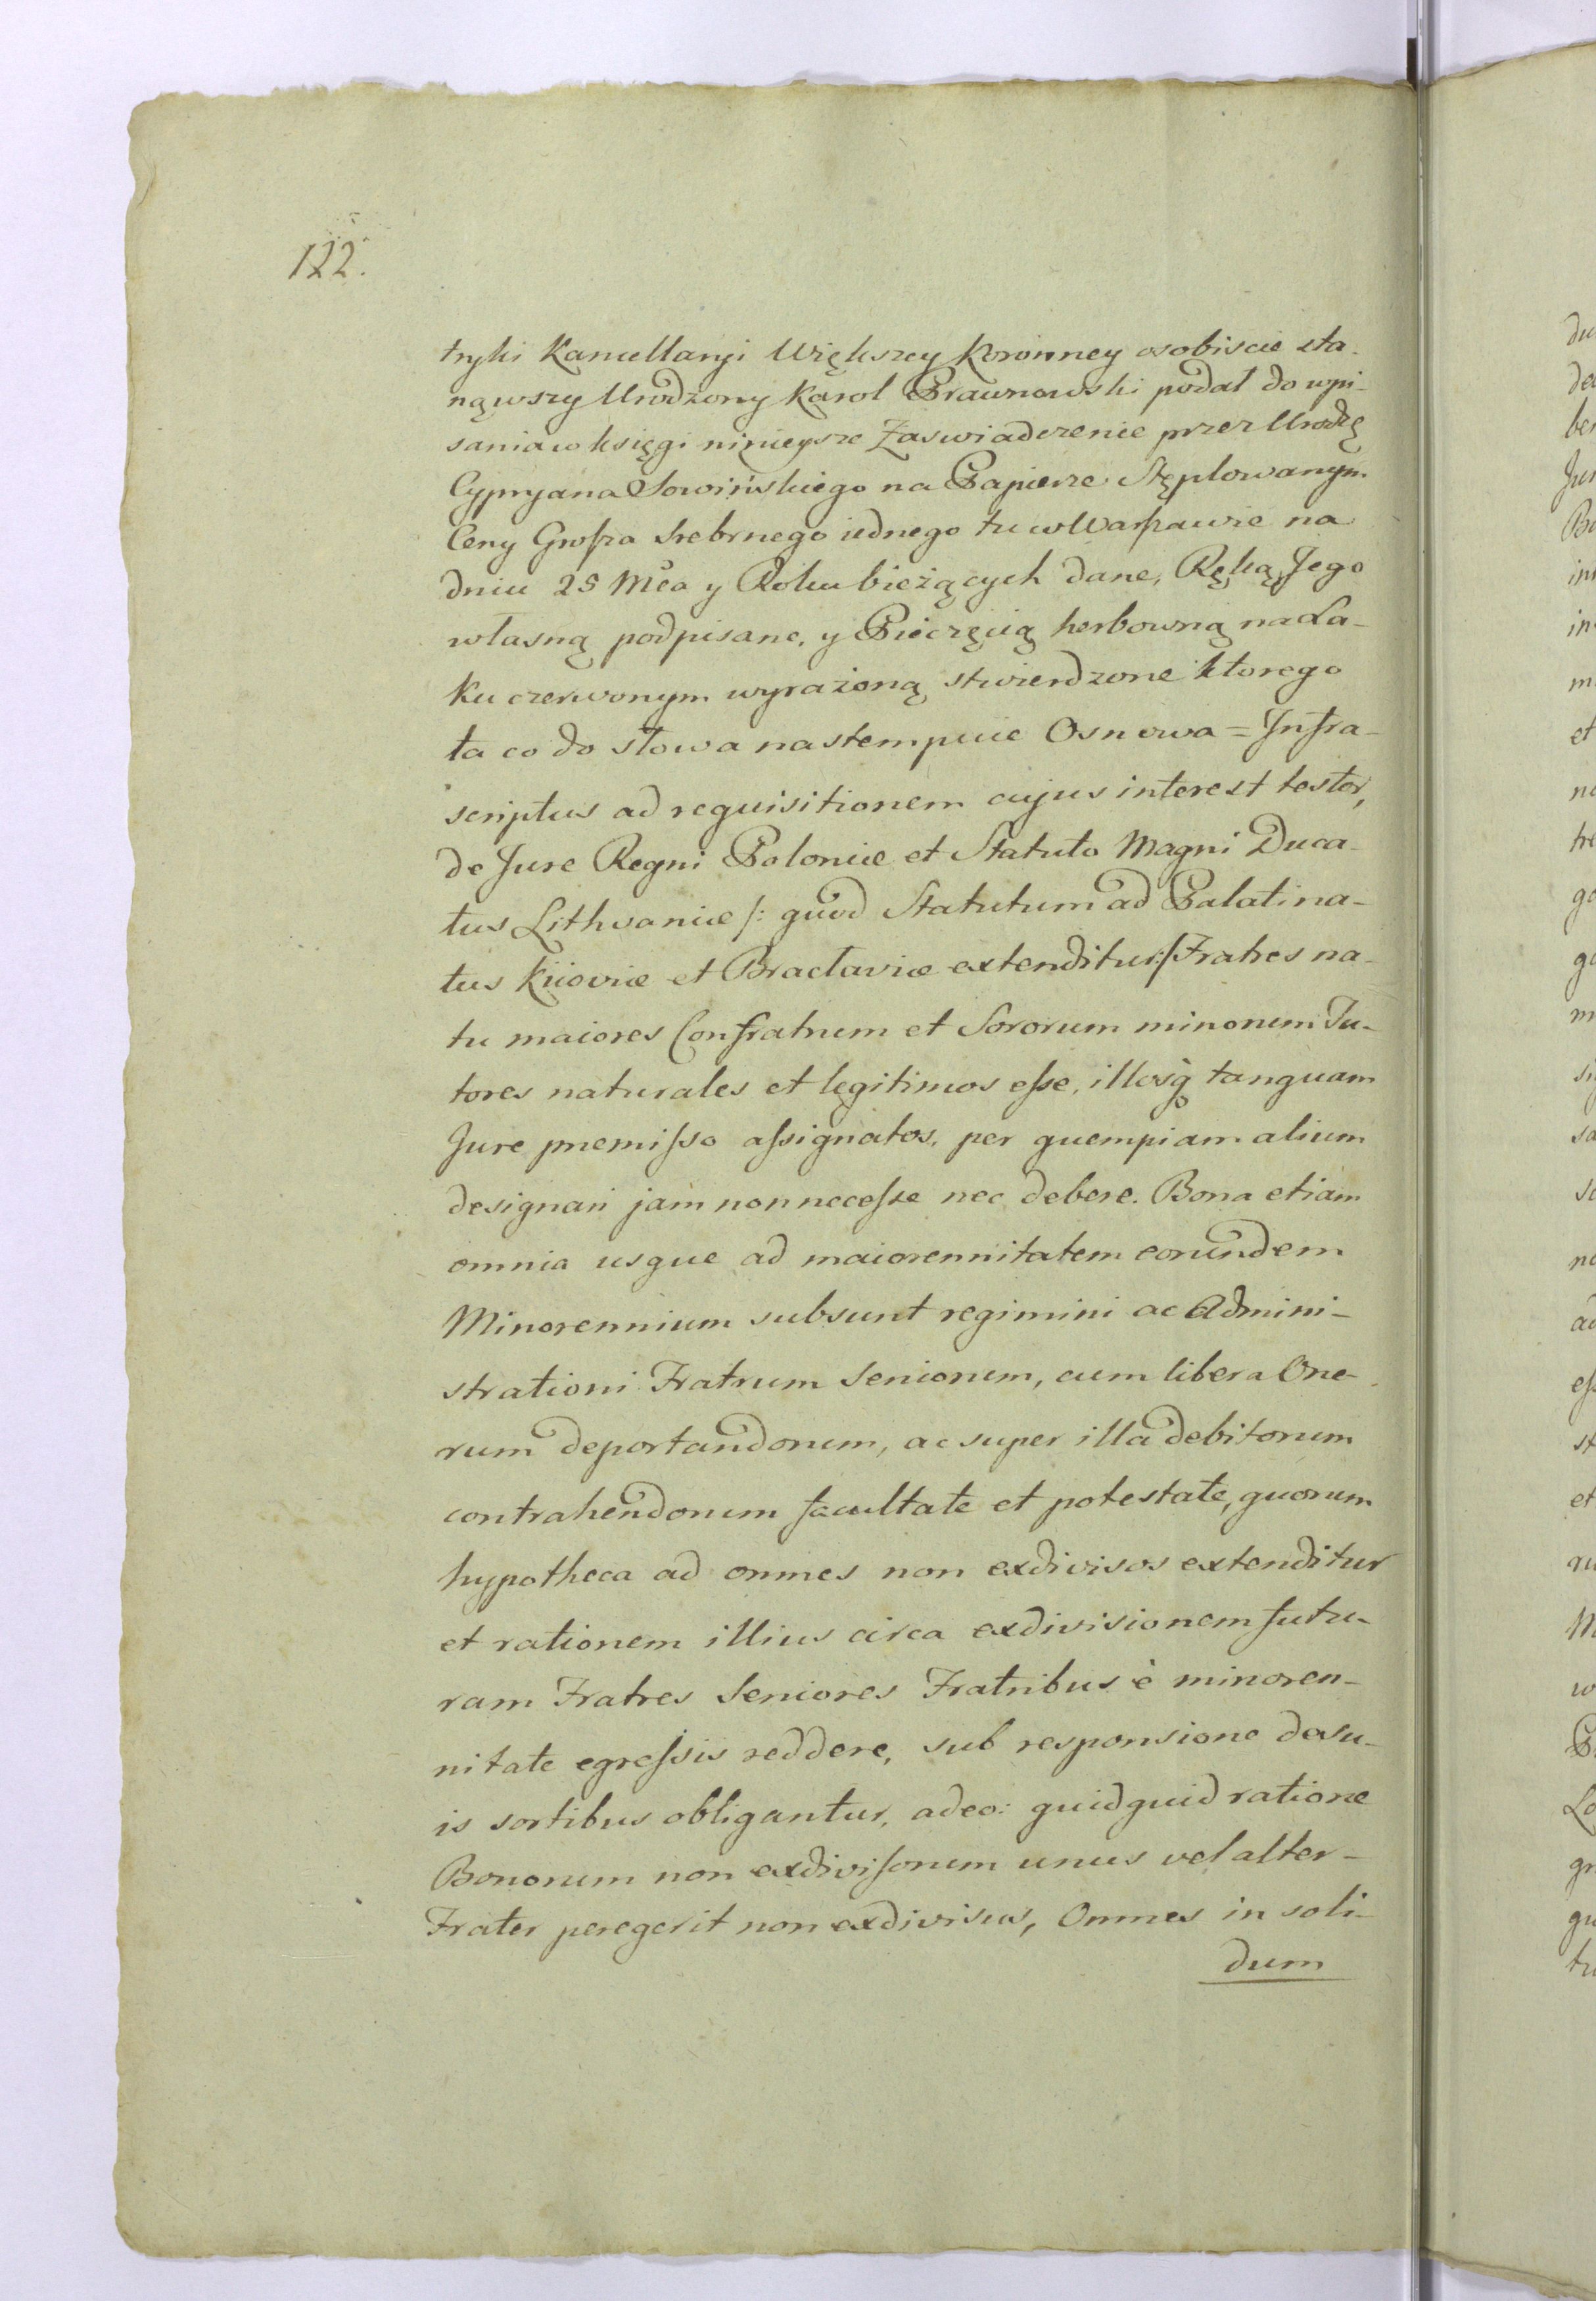 122.
tryki Kancellaryi Większey Koronney osobiscie sta-
nąwszy Urodzony Karol Prawnowski podał do wpi-
sania w księgi ninieysze Zaswiadczenie przez Urodzg
Cypryana Sowińskiego na Papierze Stęplowanym
Ceny Grosza srebrnego iednego tu w Warszawie na
dniu 25 Mca y Roku bieżących dane, Ręką Jego
własną podpisane, y Pieczęcią herbowną na La-
ku czerwonym wyrażoną stwierdzone ktorego
ta co do słowa nastempuie Osnowa = Infra-
scriptus ad requisitionem cujus interest testor,
de Jure Regni Poloniæ et Statuto Magni Duca-
tus Lithvaniæ /: quod Statutum ad Palatina-
tus Kiioviæ et Braclaviæ extenditur :/ Fratres na-
tu maiores Confratrum et Sororum minorum Tu-
tores naturales et legitimos esse, illosq tanquam
Jure premisso assignatos, per quempiam alium
designari jam non necesse nec debere. Bona etiam
omnia usque ad maiorennitatem eorundem
Minorennium subsunt regimini ac Admini-
strationi Fratrum Seniorum, cum libera One-
rum deportandorum, ac super illa debitorum
contrahendorum facultate et potestate, quorum
hypotheca ad omnes non exdivisos extenditur
et rationem illius circa exdivisionem futu-
ram Fratres Seniores Fratribus è minoren-
nitate egressis reddere, sub responsione de su-
is sortibus obligantur, adeo: quidquid ratione
Bonorum non exdivisorum unus vel alter-
Frater peregerit non exdivisus, Omnes in soli-
dum